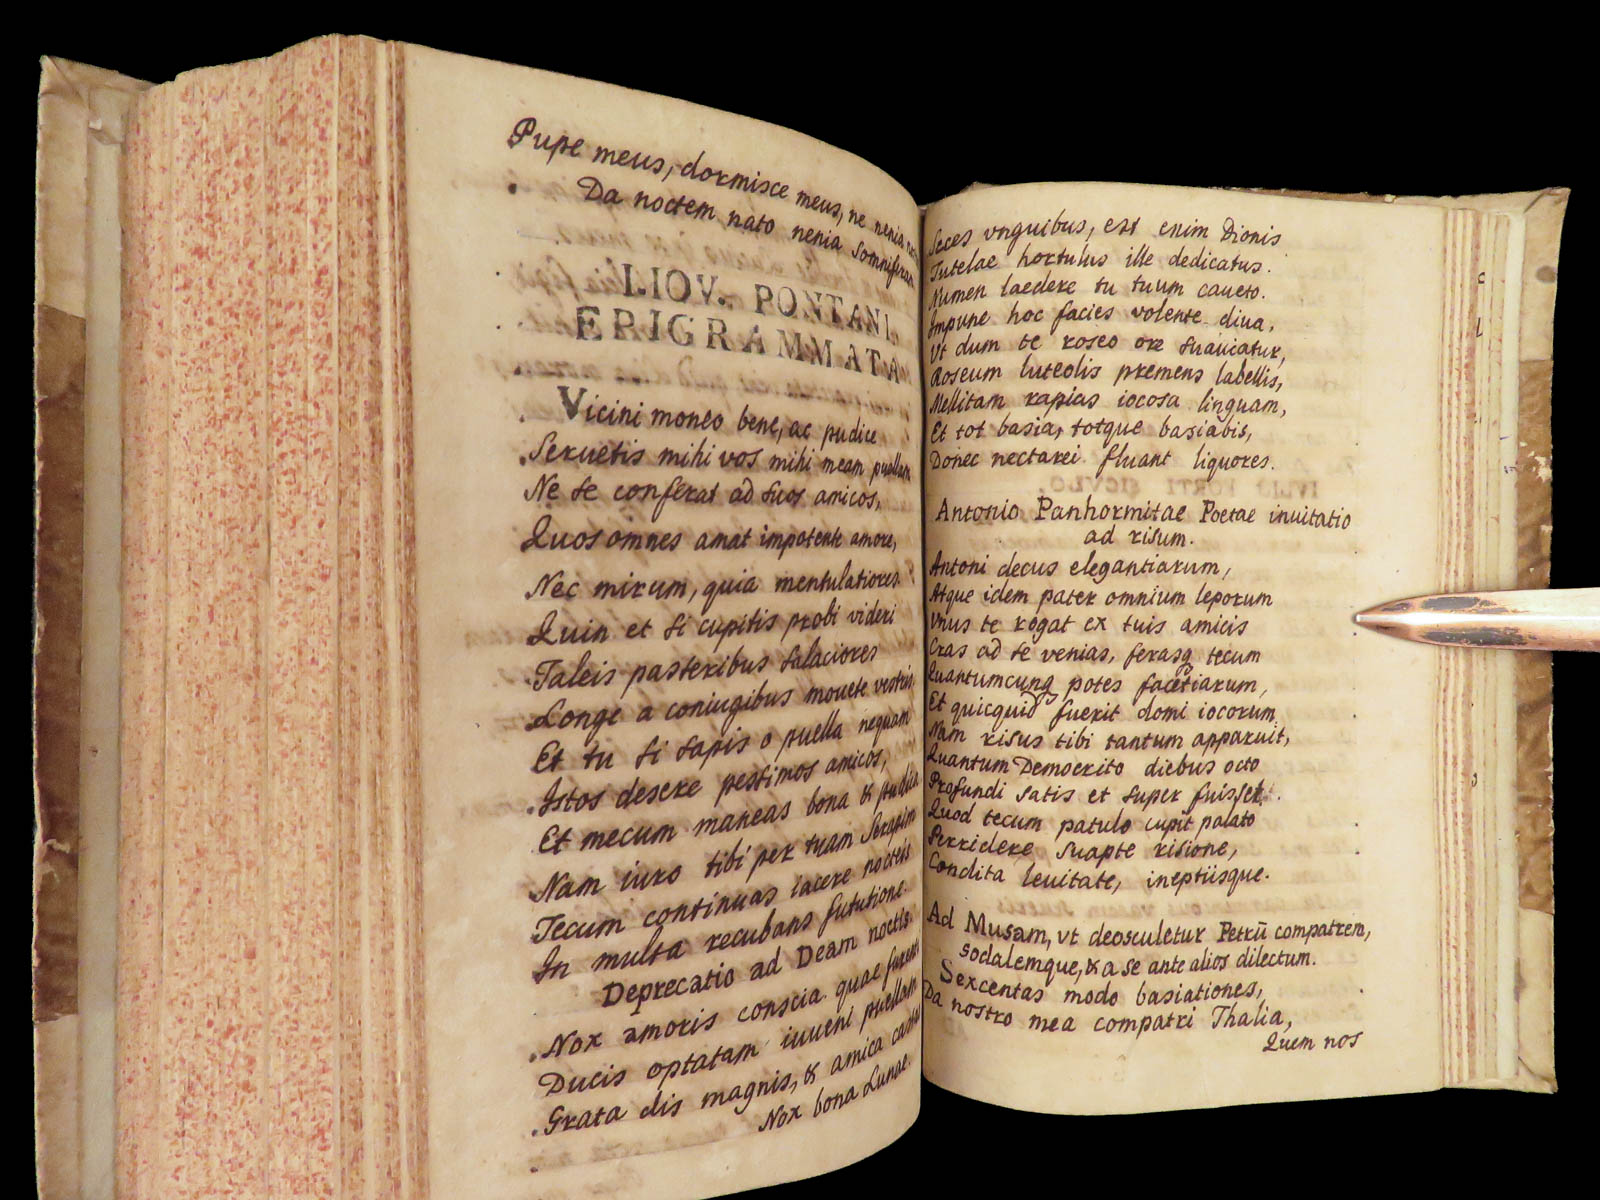 Pupe meus, dormisce meus, ne nenia
Da noctem nato nenia somniferam
I. IOV. PONTANI.
EPIGRAMMATA
Vicini moneo bene, ac pudice
Seruetis mihi vos mihi meam puellam
Ne se conferat ad suos amicos,
Quos omnes amat impotente amore,
Nec mirum, quia mentulatiores
Quin et si cupitis probi videri
Taleis passeribus salaciores
Longe a coniugibus mouete vestris
Et tu si sapis o puella nequam
Istos desere pessimos amicos,
Et mecum maneas bona & pudica
Nam iuro tibi per tuam
Tecum continuas iacere nocteis
In multa recubans fututione.
Deprecatio ad Deam noctis.
Nox amoris conscia quae furenti
Ducis optatam iuueni puellam
Grata dis magnis, & amica castae
Nox bona Lunae.
Seces vnguibus, est enim Dionis
Tutelae hortulus ille dedicatus.
Numen laedere tu tuum caueto.
Impune hoc facies volente diua,
Vt dum te roseo ore suauiatur,
Roseum luteolis premens labellis,
Mellitam rapias iocosa linguam,
Et tot basia, totque basiabis,
Donec nectarei fluant liquores.
Antonio Panhormitae Poetae inuitatio
ad risum.
Antoni decus elegantiarum,
Atque idem pater omnium leporum
Vnus te rogat ex tuis amicis
Cras ad se venias, ferasq tecum
Quantumcunq potes facetiarum,
Et quicquid fuerit domi iocorum
Nam risus tibi tantum apparuit,
Quantum Democrito diebus octo
Profundi satis et super fuisset.
Quod tecum patulo cupit palato
Perridere suapte risione,
Condita leuitate, ineptiisque.
Ad Musam, vt deosculetur Petrū compatrem,
sodalemque, & a se ante alios dilectum.
Sexcentas modo basiationes,
Da nostro mea compatri Thalia,
Quem nos